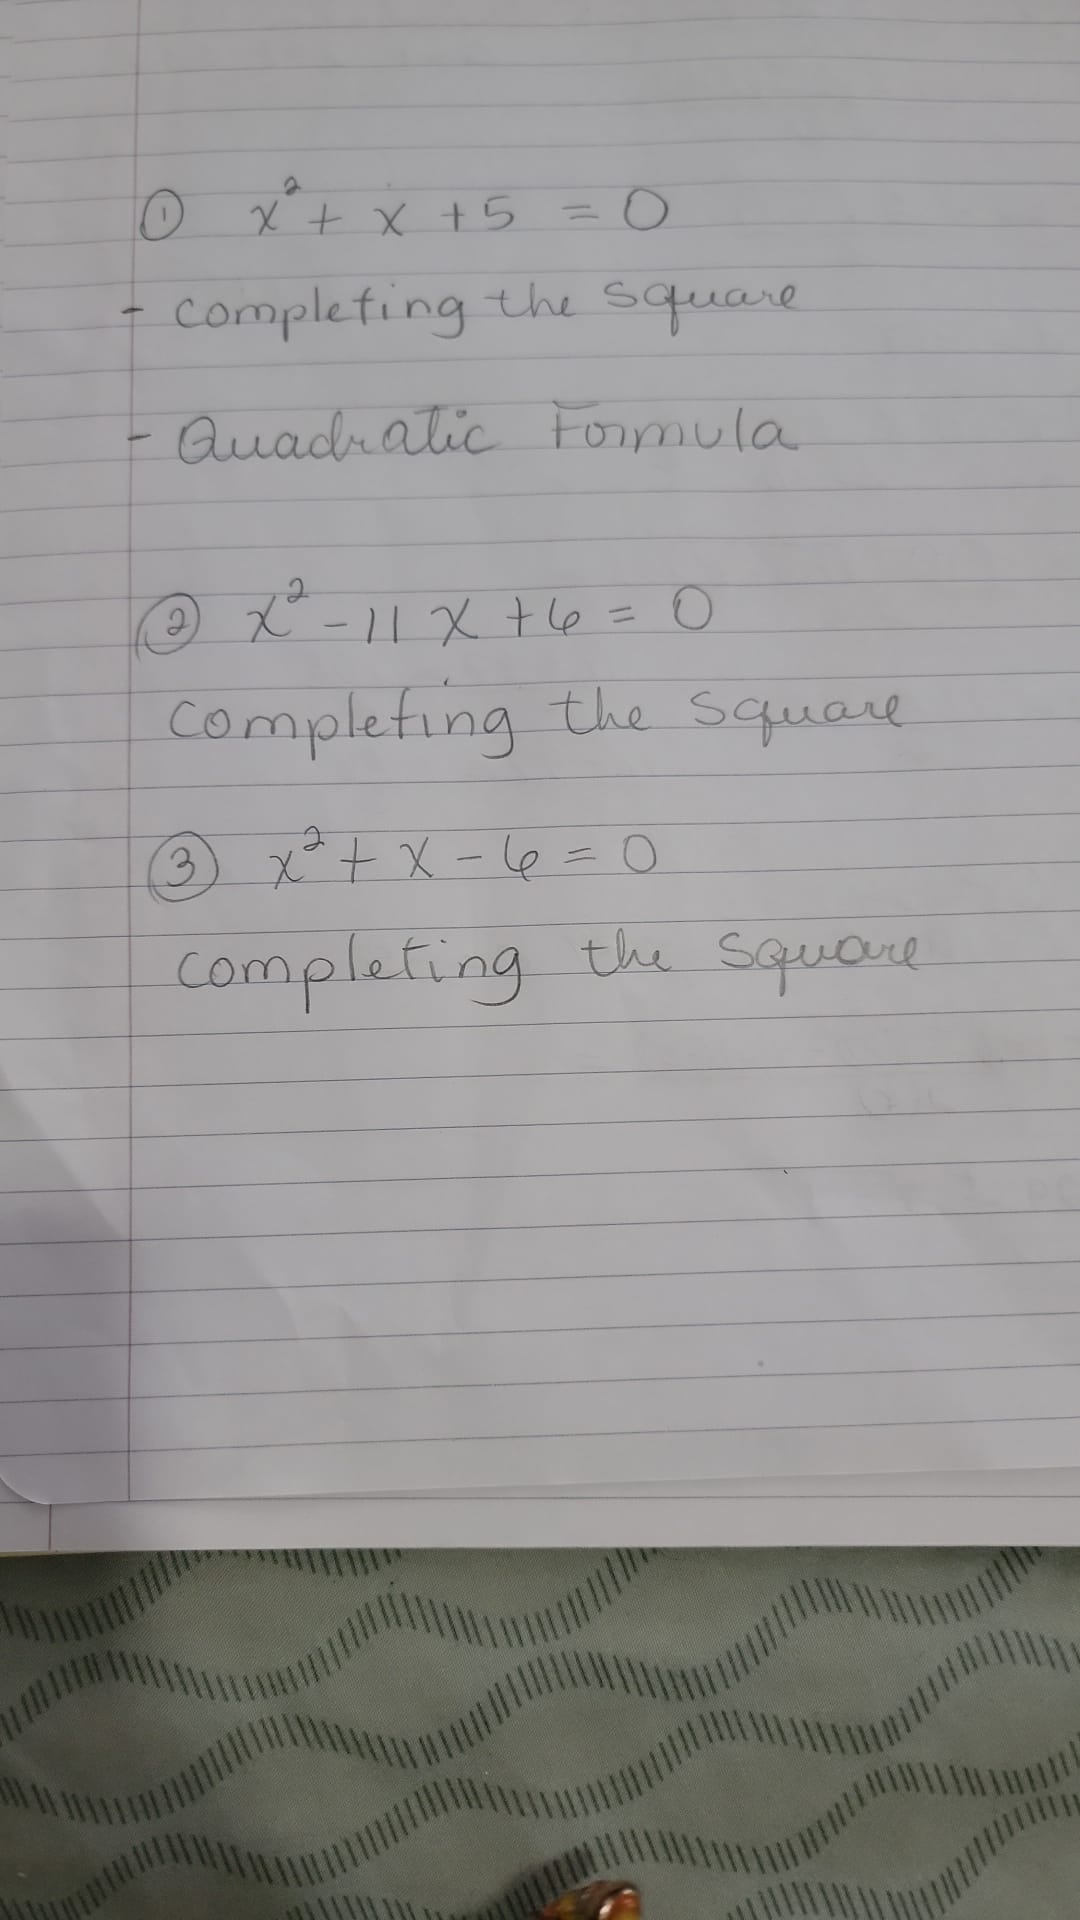 ① x² + x + 5 = 0
- completing the square
- Quadratic Formula
② x² - 11 x + 6 = 0
completing the square
③ x² + x - 6 = 0
completing the square